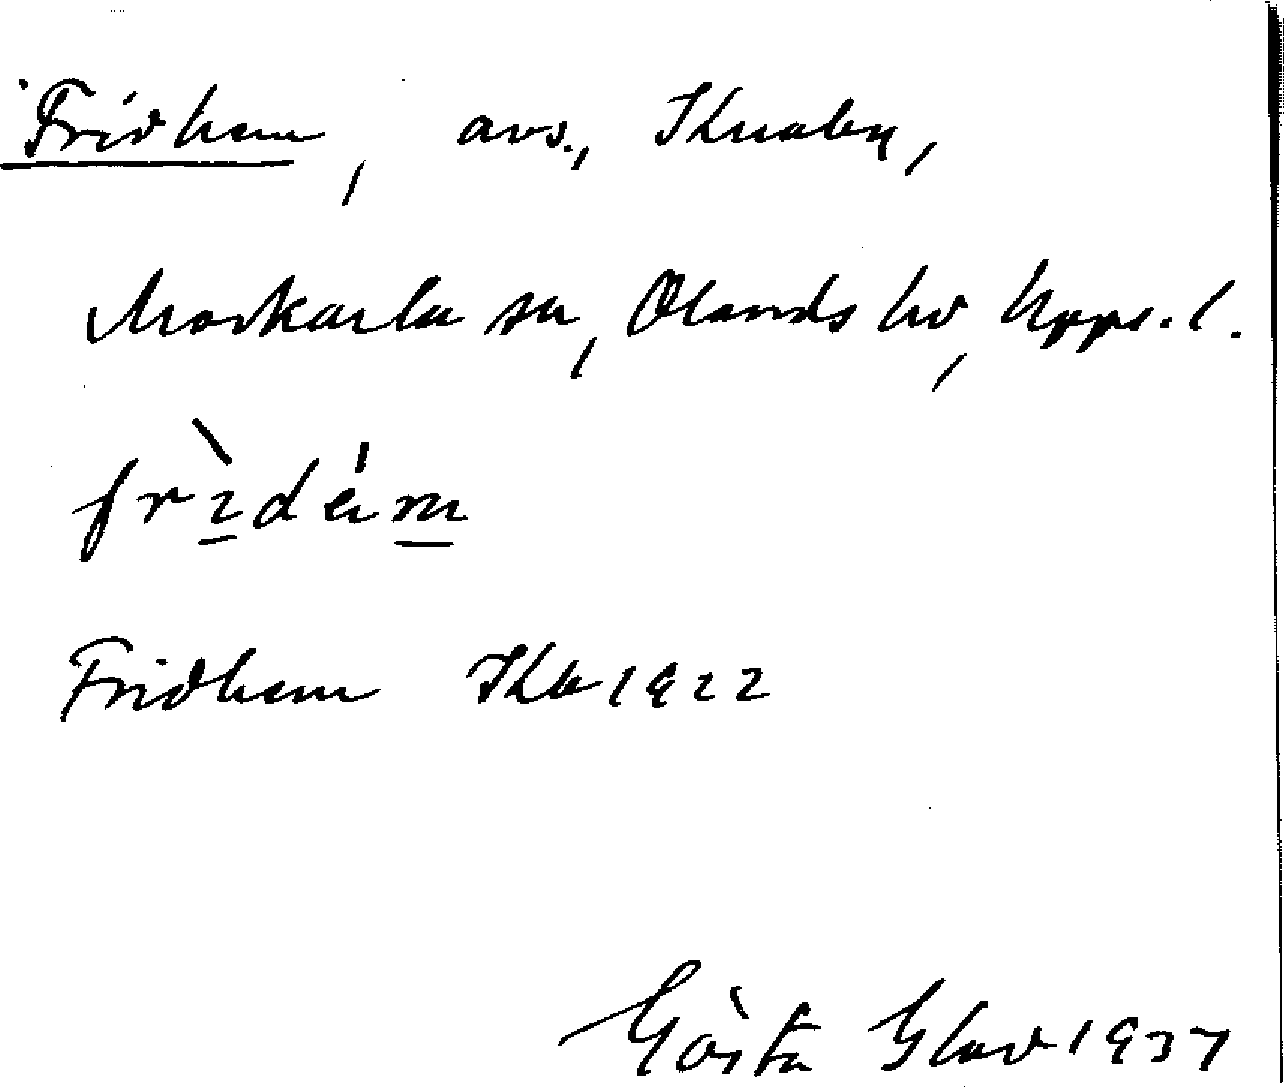 Fridhem, avs., Knaby,
Morkarla sn, Olands hd, Upps. l.
frìdém
Fridhem Kb 1922
Gösta Glad 1937